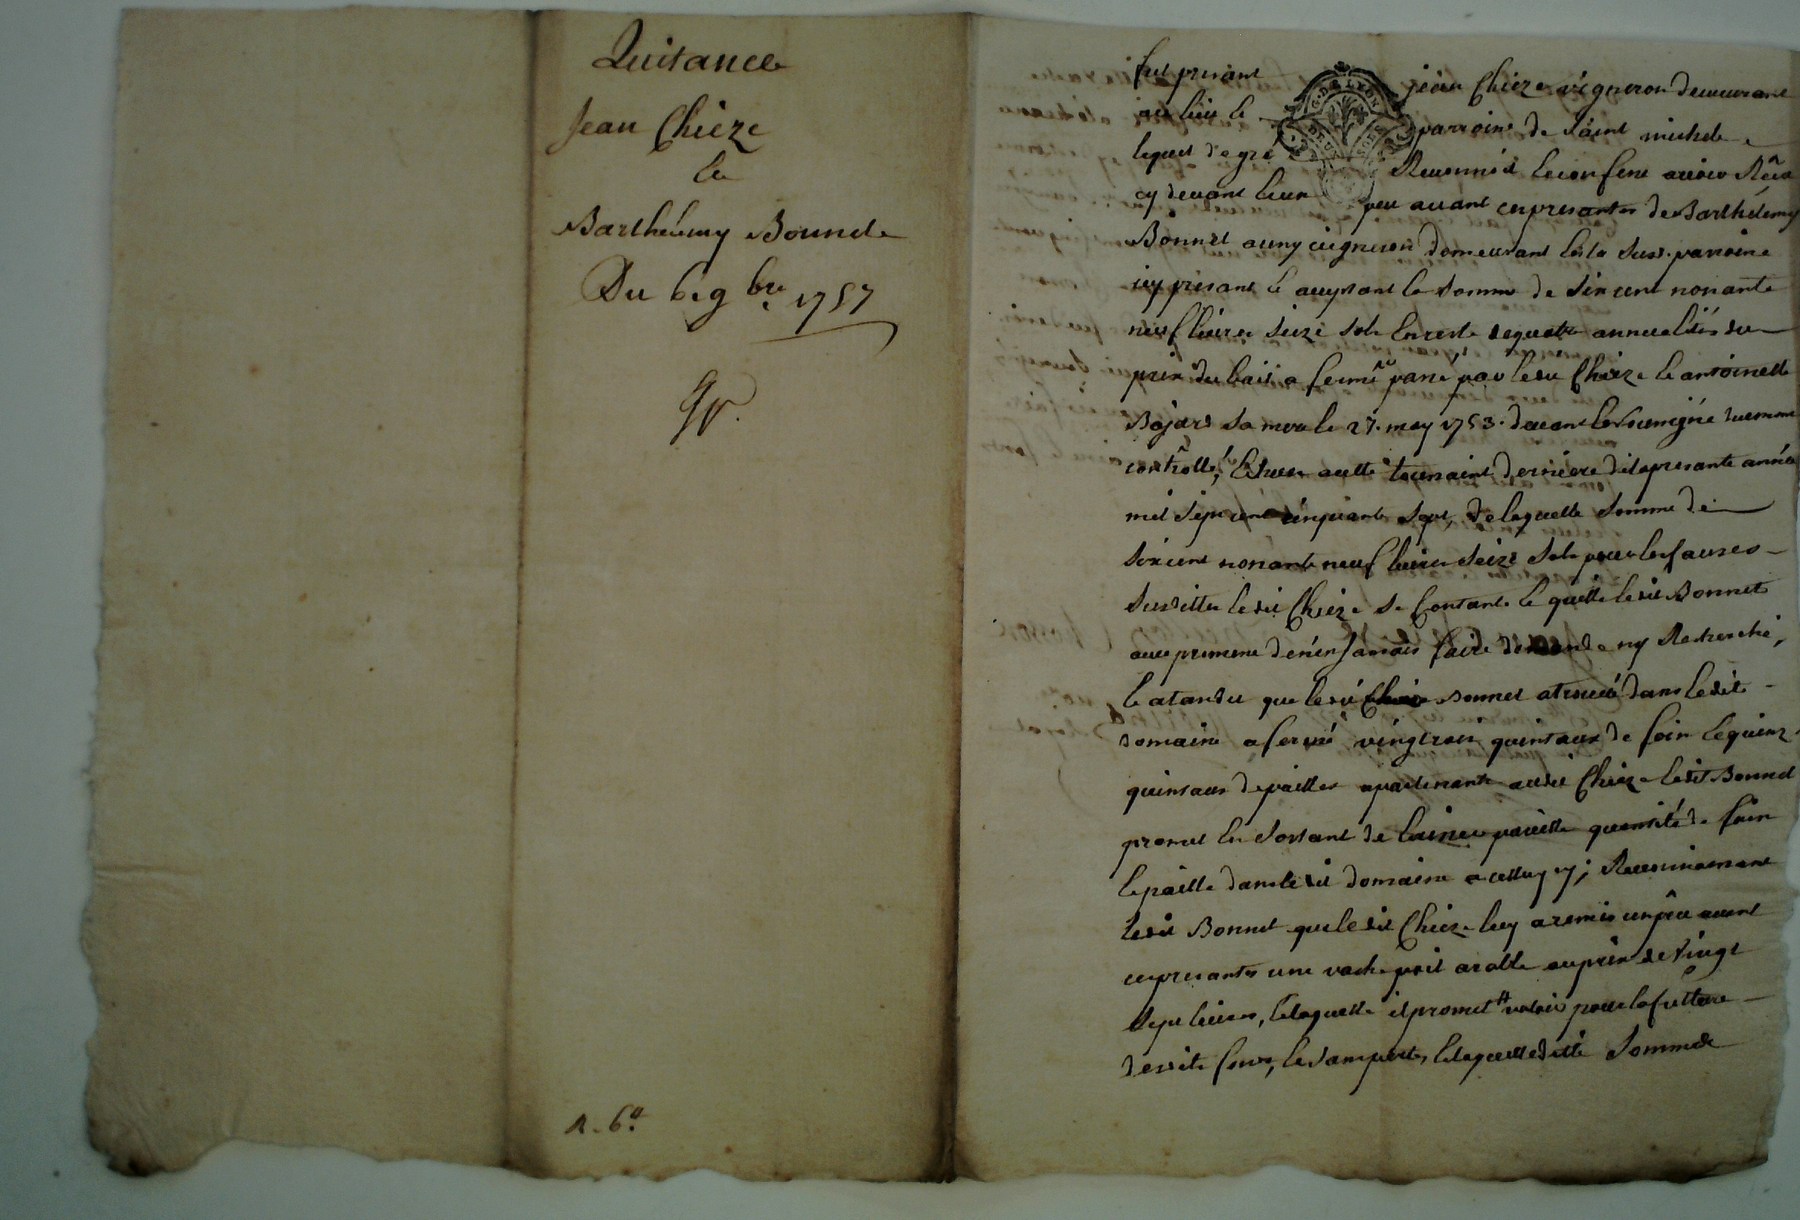 Quitance
Jean Chieze
Barthelemy Bounet
Du 6e 9bre 1757
R. 6d
fut présant jean Chieze vigneron demeurant
au lieu parroisse de saint michel
lequel de gré Reconnoit et confesse avoir
cy devant peu avant ces presantes de Barthélémy
Bonnet vigneron demeurant susd. parroisse
icy présant et acceptant la somme de six cent nonante
neuf livres seize sols en reste de quatre annualités du
prix du bail a ferme passé par led Chieze et antoinette
Bojard sa mere le 27. may 1753. devant le soussigné
controllé, toussaint derniere de la presante année
mil sept cent cinquante sept, de laquelle somme de
six cent nonante neuf livres seize sols pour les causes
susdittes ledit Chieze se contante et quitte ledit Bonnet
avec promesse de n'en jamais faire demande ny Recherche,
et atandu que ledit Bonnet a trouvé dans ledit
domaine afermé vingt trois quintaux de foin et quinze
quintaux de pailles apartenants audit Chieze ledit Bonnet
promet en sortant de laisser pareille quantité de foin
et paille dans ledit domaine a celluy cy; Reconnoissant
ledit Bonnet que ledit Chieze luy a remis un peu avant
ces presantes une vache poil au prix de vingt
sept livres, de laquelle il promet pour la culture
de laquelle ditte somme de